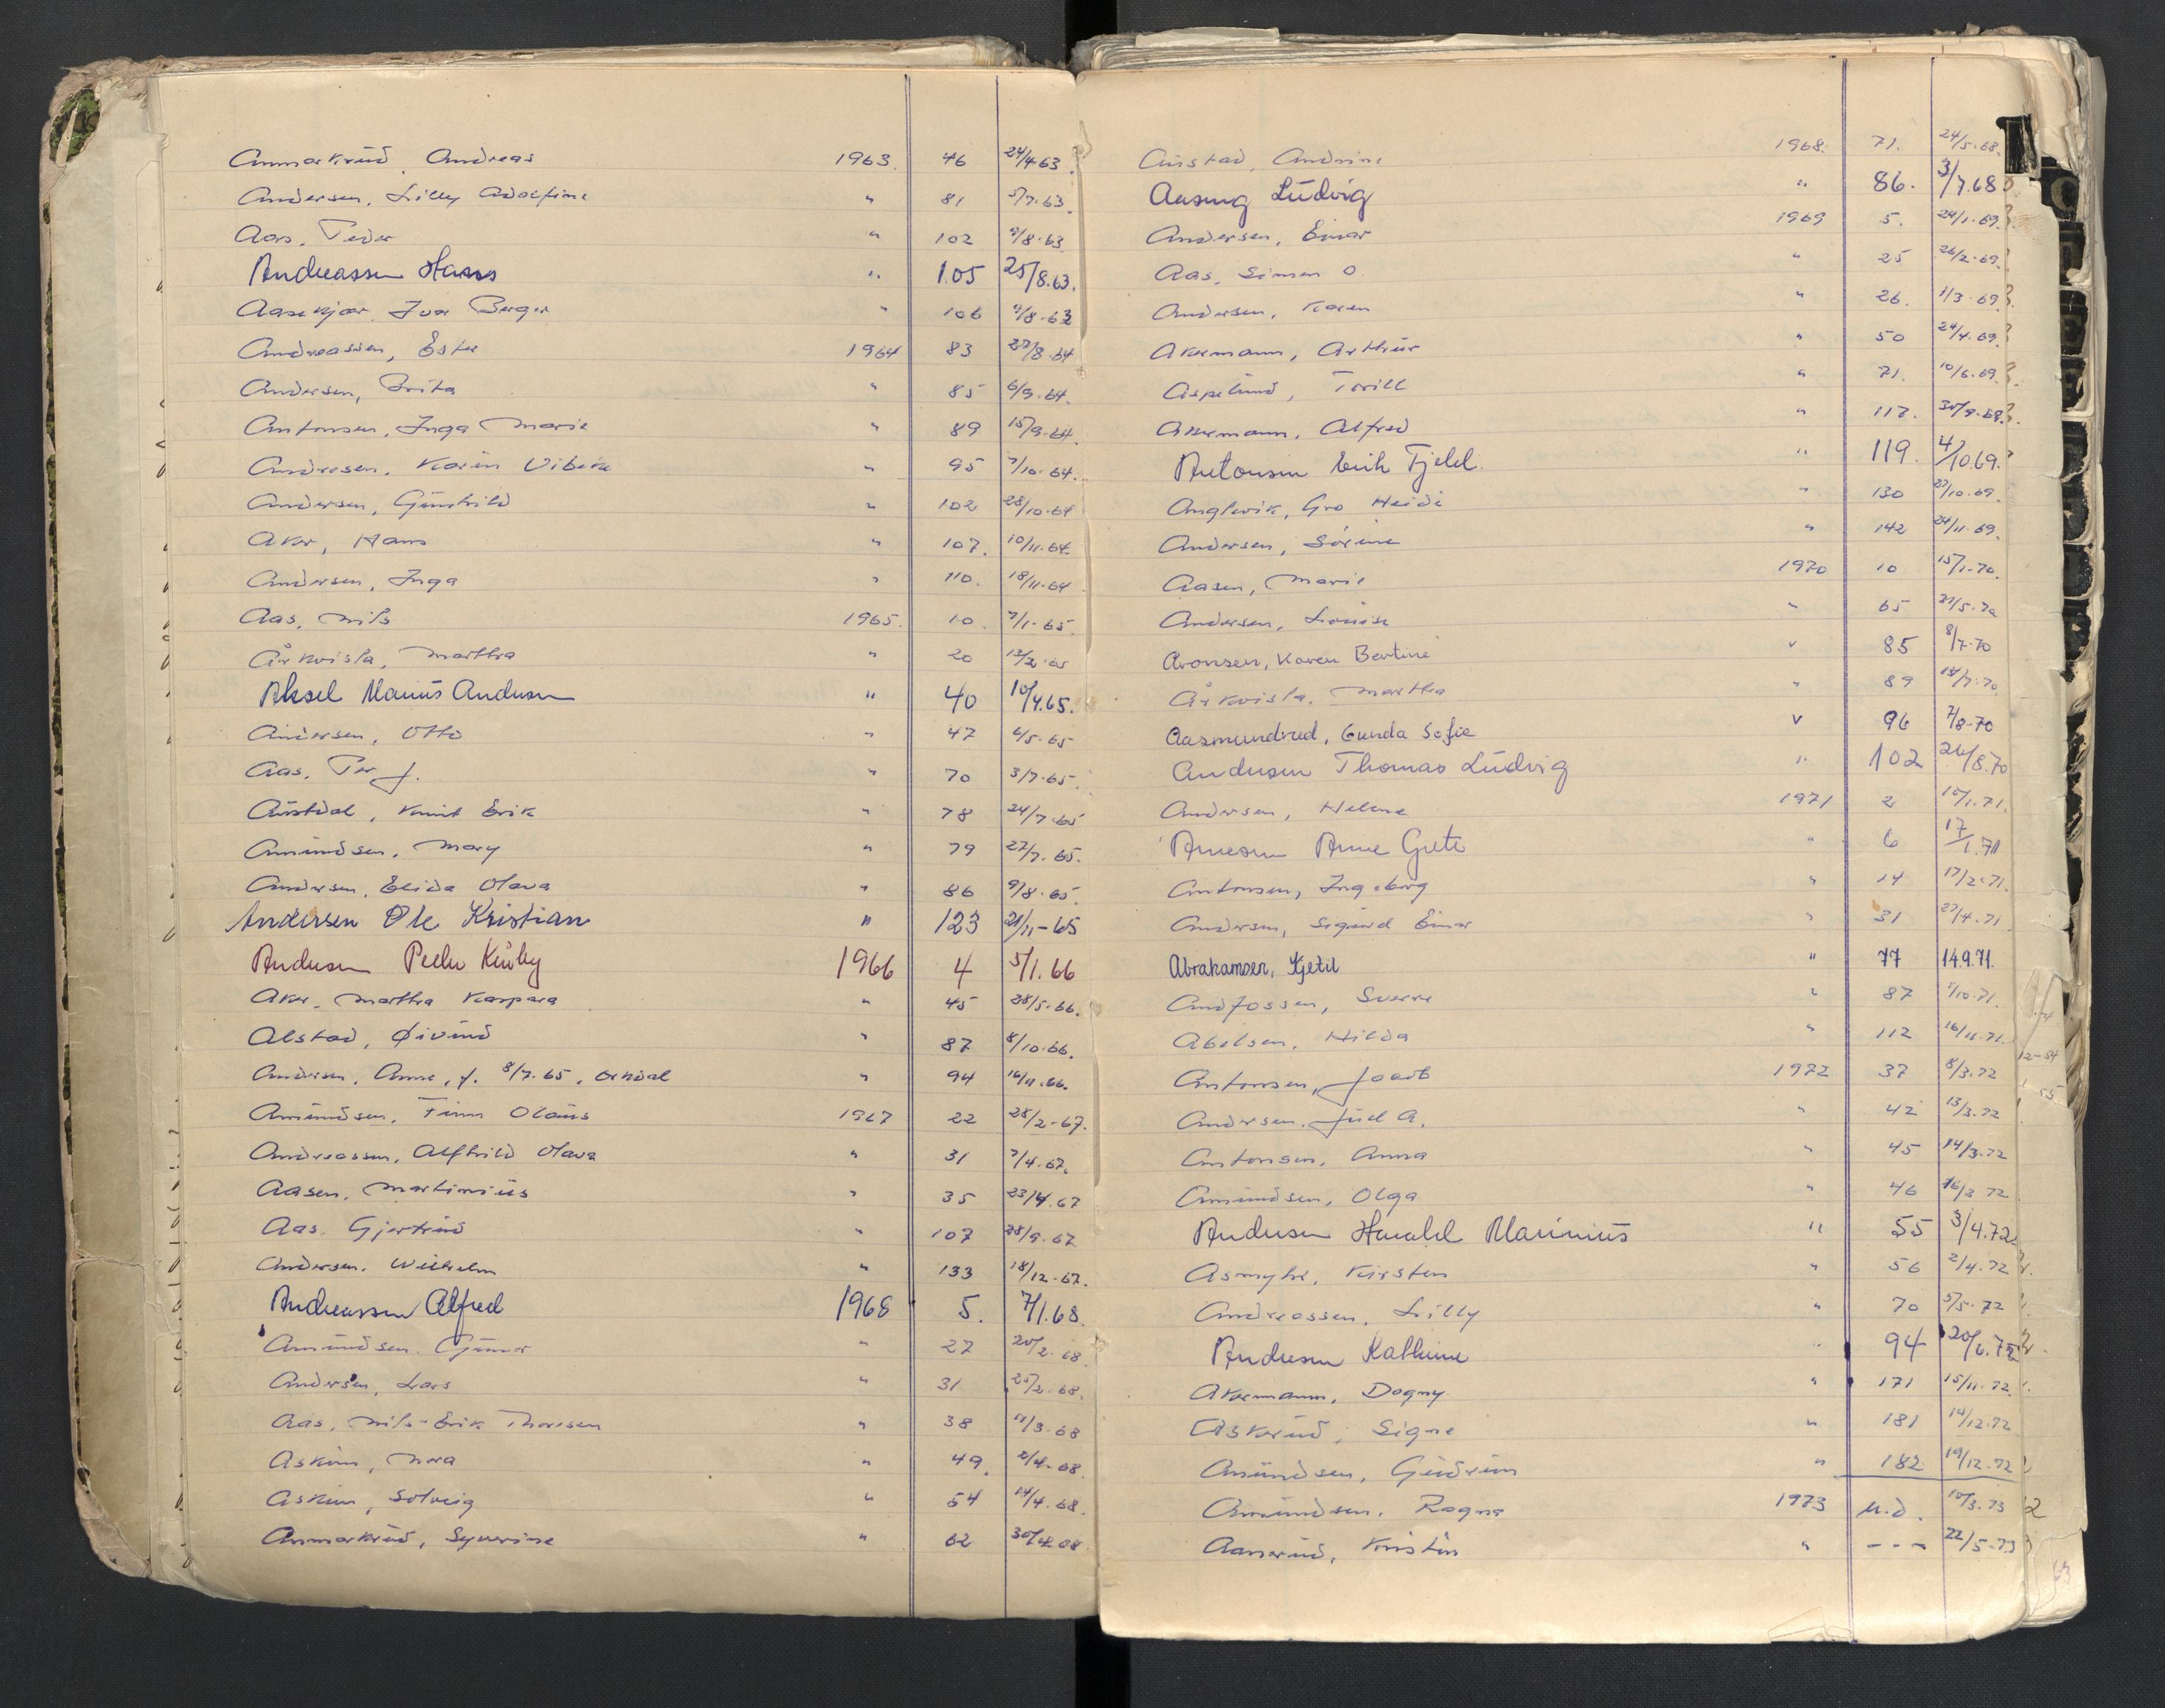 Anmarkrud, Andreas 1963. 46 24/4 63.
Andersen, Lilly Adolfine " 81 5/7. 63.
Aas, Peder " 102 9/8. 63
Andreassen Hans " 105 25/8. 63.
Aasekjær, Ivar Berger " 106 9/8. 63
Andreassen, Ester 1964 83 27/8. 64
Andersen, Brita " 85 6/9. 64.
Antonsen, Inga Marie " 89 15/9. 64.
Andresen, Karin Vibeke " 95 7/10. 64.
Andersen, Gunhild " 102 28/10. 64
Aker, Hans " 107. 10/11. 64.
Andersen, Inga " 110. 18/11. 64
Aas, Nils 1965. 10. 7/1. 65.
Årkvisla, Martha " 20 13/2. 65
Aksel Marius Andersen " 40 10/4. 65.
Andersen, Otto " 47 4/5. 65
Aas, Per J. " 70 3/7. 65.
Austdal, Knut Erik " 78 24/7. 65
Amundsen, Mary " 79 27/7. 65.
Andersen, Elida Olava " 86 9/8. 65.
Andersen Ole Kristian " 123 21/11 - 65
Andersen Peder Kirby 1966 4 5/1. 66
Aker, Martha Kaspara " 45 28/5. 66.
Alstad, Øivind " 87 8/10. 66.
Andersen, Anne, f. 8/7. 65, Orkdal " 94 16/11. 66.
Amundsen, Finn Olaus 1967 22 28/2 - 67.
Andreassen, Alfhild Olava " 31 7/4. 67.
Aasen, Martinius " 35 23/4. 67
Aas, Gjertrud " 107 28/9. 67
Andersen, Wilhelm " 133 18/12. 67.
Andreassen Alfred 1968 5. 7/1. 68.
Amundsen, Gunnar " 27 20/2. 68
Andersen, Lars " 31 25/2. 68.
Aas, Nils-Erik Thoresen " 38 11/3. 68
Askim, Nora " 49. 2/4. 68.
Askim, Solveig " 54 14/4. 68.
Anmarkrud, Syverine " 62 30/4. 68
Austad, Andrine 1968. 71. 24/5. 68.
Aaseng Ludvig " 86. 3/7. 68
Andersen, Einar 1969 5. 24/1. 69.
Aas, Simen O. " 25 26/2. 69.
Andersen, Karen " 26. 1/3. 69.
Akermann, Arthur " 50 24/4. 69.
Aspelund, Torill " 71. 10/6. 69.
Akermann, Alfred " 117. 30/9. 69.
Antonsen Erik Fjeld. " 119. 4/10. 69.
Anglevik, Gro Heidi " 130 27/10. 69.
Andersen, Sørine " 142 24/11. 69.
Aasen, Marie 1970 10 15/1. 70.
Andersen, Louise " 65 21/5. 70
Aronsen, Karen Bertine " 85 8/7. 70
Årkvisla, Martha " 89 18/7. 70
Aasmundrud, Gunda Sofie " 96 7/8. 70
Andersen Thomas Ludvig " 102 26/8. 70
Andersen, Helene 1971 2 10/1. 71.
Arnesen Anne Grete " 6 17/1. 71
Antonsen, Ingeborg " 14 17/2. 71.
Andersen, Sigurd Einar " 31 27/4. 71
Abrahamsen, Kjetil " 77 14.9.71.
Andfossen, Sverre " 87 /10. 71.
Abelsen, Hilda " 112 16/11. 71.
Antonsen, Jacob 1972 37 8/3. 72
Andersen, Juel A. " 42 13/3. 72
Antonsen, Anna " 45 14/3. 72
Amundsen, Olga " 46 16/3 72
Andersen Harald Marinius " 55 3/4. 72
Asmyhr, Kirsten " 56 2/4. 72
Andreassen, Lilly " 70 5/5. 72
Andresen Kathrine " 94 20/6. 72
Akermann, Dagny " 171 15/11. 72.
Askerud, Signe " 181 14/12. 72
Amundsen, Gudrun " 182. 19/12. 72
Amundsen, Ragna 1973 u.d. 10/3. 73
Aanerud, Kristin " - - - 22/5. 73